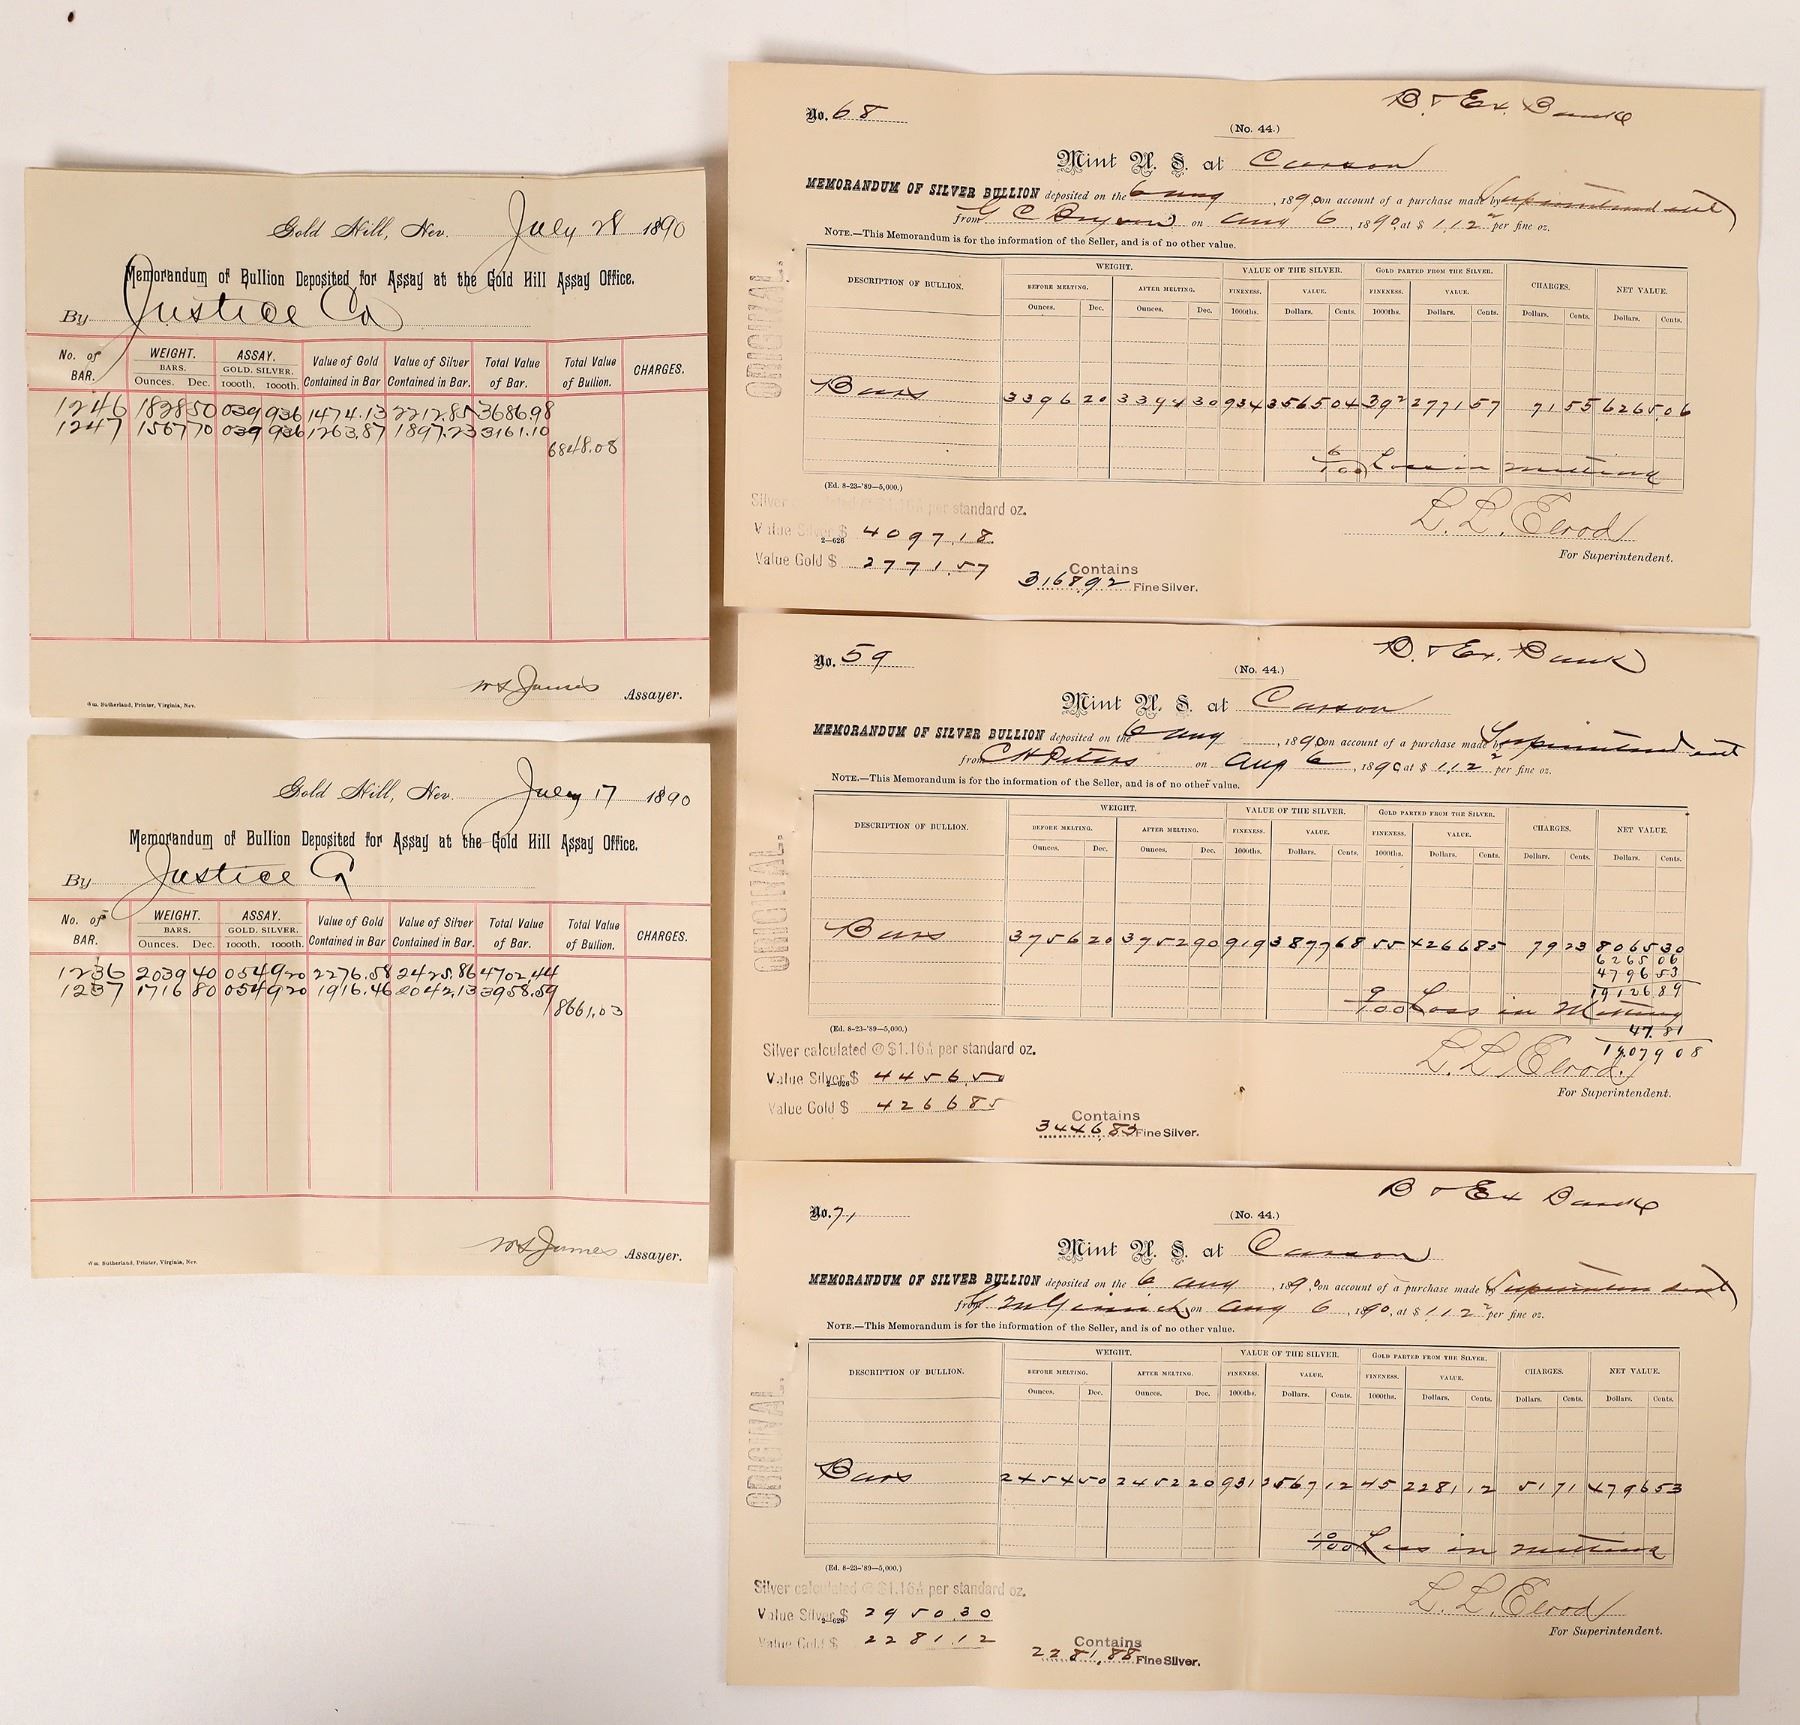 Gold Hill, Nev. July 28 1890
Memorandum of Bullion Deposited for Assay at the Gold Hill Assay Office.
By Justice Co
No. of BAR. WEIGHT. BARS. Ounces. Dec. ASSAY. GOLD. SILVER. 1000th. 1000th. Value of Gold Contained in Bar Value of Silver Contained in Bar. Total Value of Bar. Total Value of Bullion. CHARGES.
1246 1828 50 039 936 1474.13 2212.85 3686.98
1247 1567 70 039 936 1263.87 1897.23 3161.10
6848.08
WS James Assayer.
Wm. Sutherland, Printer, Virginia, Nev.
Gold Hill, Nev. July 17 1890
Memorandum of Bullion Deposited for Assay at the Gold Hill Assay Office.
By Justice Co
No. of BAR. WEIGHT. BARS. Ounces. Dec. ASSAY. GOLD. SILVER. 1000th. 1000th. Value of Gold Contained in Bar Value of Silver Contained in Bar. Total Value of Bar. Total Value of Bullion. CHARGES.
1236 2039 40 054 920 2276.58 2425.86 4702.44
1237 1716 80 054 920 1916.46 2042.13 3958.59
8661.03
WS James Assayer.
Wm. Sutherland, Printer, Virginia, Nev.
B. & Ex. Bank
No. 68
(No. 44.)
Mint U. S. at Carson
MEMORANDUM OF SILVER BULLION deposited on the 6 aug, 1890, on account of a purchase made by Superintendent
from G C Bryson on aug 6, 1890, at $ 1.12 2 per fine oz.
NOTE.—This Memorandum is for the information of the Seller, and is of no other value.
ORIGINAL.
DESCRIPTION OF BULLION. WEIGHT. VALUE OF THE SILVER. GOLD PARTED FROM THE SILVER. CHARGES. NET VALUE.
BEFORE MELTING. AFTER MELTING. FINENESS. VALUE. FINENESS. VALUE.
Ounces. Dec. Ounces. Dec. 1000ths. Dollars. Cents. 1000ths. Dollars. Cents. Dollars. Cents. Dollars. Cents.
Bars 3396 20 3394 30 934 3565 04 39 2 2771 57 71 55 6265.06
6/100 Loss in melting
(Ed. 8-23-'89—5,000.)
L. L. Elrod
For Superintendent.
Silver calculated @ $1.16 per standard oz.
Value Silver $ 4097.18
2—626
Value Gold $ 2771.57
Contains
3168.92 Fine Silver.
B. & Ex. Bank
No. 59
(No. 44.)
Mint U. S. at Carson
MEMORANDUM OF SILVER BULLION deposited on the 6 aug, 1890, on account of a purchase made by Superintendent
from C H Peters on aug 6, 1890, at $ 1.12 2 per fine oz.
NOTE.—This Memorandum is for the information of the Seller, and is of no other value.
ORIGINAL.
DESCRIPTION OF BULLION. WEIGHT. VALUE OF THE SILVER. GOLD PARTED FROM THE SILVER. CHARGES. NET VALUE.
BEFORE MELTING. AFTER MELTING. FINENESS. VALUE. FINENESS. VALUE.
Ounces. Dec. Ounces. Dec. 1000ths. Dollars. Cents. 1000ths. Dollars. Cents. Dollars. Cents. Dollars. Cents.
Bars 3756 20 3752 90 919 3877 68 55 4266 85 79 23 8065 30
6265 06
4796 53
19126 89
9/100 Loss in Melting
47.81
19079 08
(Ed. 8-23-'89—5,000.)
L. L. Elrod
For Superintendent.
Silver calculated @ $1.16 per standard oz.
Value Silver $ 4456.50
2—626
Value Gold $ 4266 85
Contains
3446,83 Fine Silver.
B & Ex Bank
No. 71
(No. 44.)
Mint U. S. at Carson
MEMORANDUM OF SILVER BULLION deposited on the 6 aug, 1890, on account of a purchase made by Superintendent
from on aug 6, 1890, at $ 1.12 2 per fine oz.
NOTE.—This Memorandum is for the information of the Seller, and is of no other value.
ORIGINAL.
DESCRIPTION OF BULLION. WEIGHT. VALUE OF THE SILVER. GOLD PARTED FROM THE SILVER. CHARGES. NET VALUE.
BEFORE MELTING. AFTER MELTING. FINENESS. VALUE. FINENESS. VALUE.
Ounces. Dec. Ounces. Dec. 1000ths. Dollars. Cents. 1000ths. Dollars. Cents. Dollars. Cents. Dollars. Cents.
Bars 2454 50 2452 20 931 2567 12 45 2281 12 51 71 4796 53
10/100 Loss in melting
(Ed. 8-23-'89—5,000.)
L. L. Elrod
For Superintendent.
Silver calculated @ $1.16 per standard oz.
Value Silver $ 2950.30
2—626
Value Gold $ 2281.12
Contains
2281,88 Fine Silver.